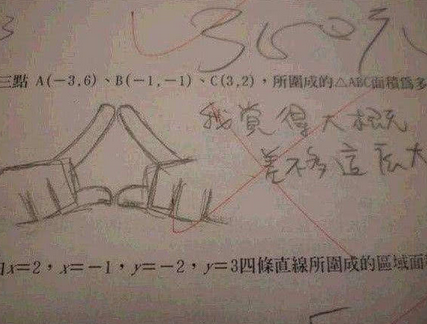 360
三點 A(-3,6)、B(-1,-1)、C(3,2)，所圍成的△ABC面積為多
我覺得大概
差不多這麼大
x=2，x=-1，y=-2，y=3四條直線所圍成的區域面